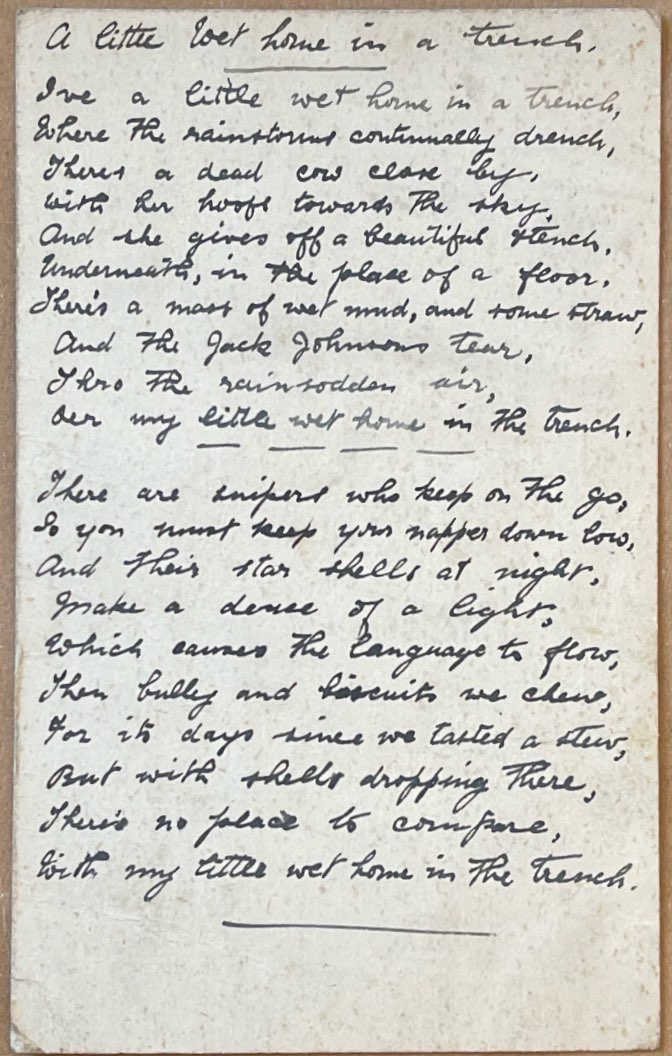 A little Wet home in a trench.
I've a little wet home in a trench,
Where the rainstorms continually drench,
Theres a dead cow close by,
With her hoofs towards the sky,
And she gives off a beautiful stench.
Underneath, in the place of a floor.
There's a mass of wet mud, and some straw,
And the Jack Johnsons tear,
Thro the rainsodden air,
Oer my little wet home in the trench.
There are snipers who keep on the go,
So you must keep your napper down low,
And their star shells at night,
Make a deuce of a light,
Which causes the language to flow,
Then bully and biscuits we chew,
For its days since we tasted a stew,
But with shells dropping there,
There's no place to compare,
With my little wet home in the trench.